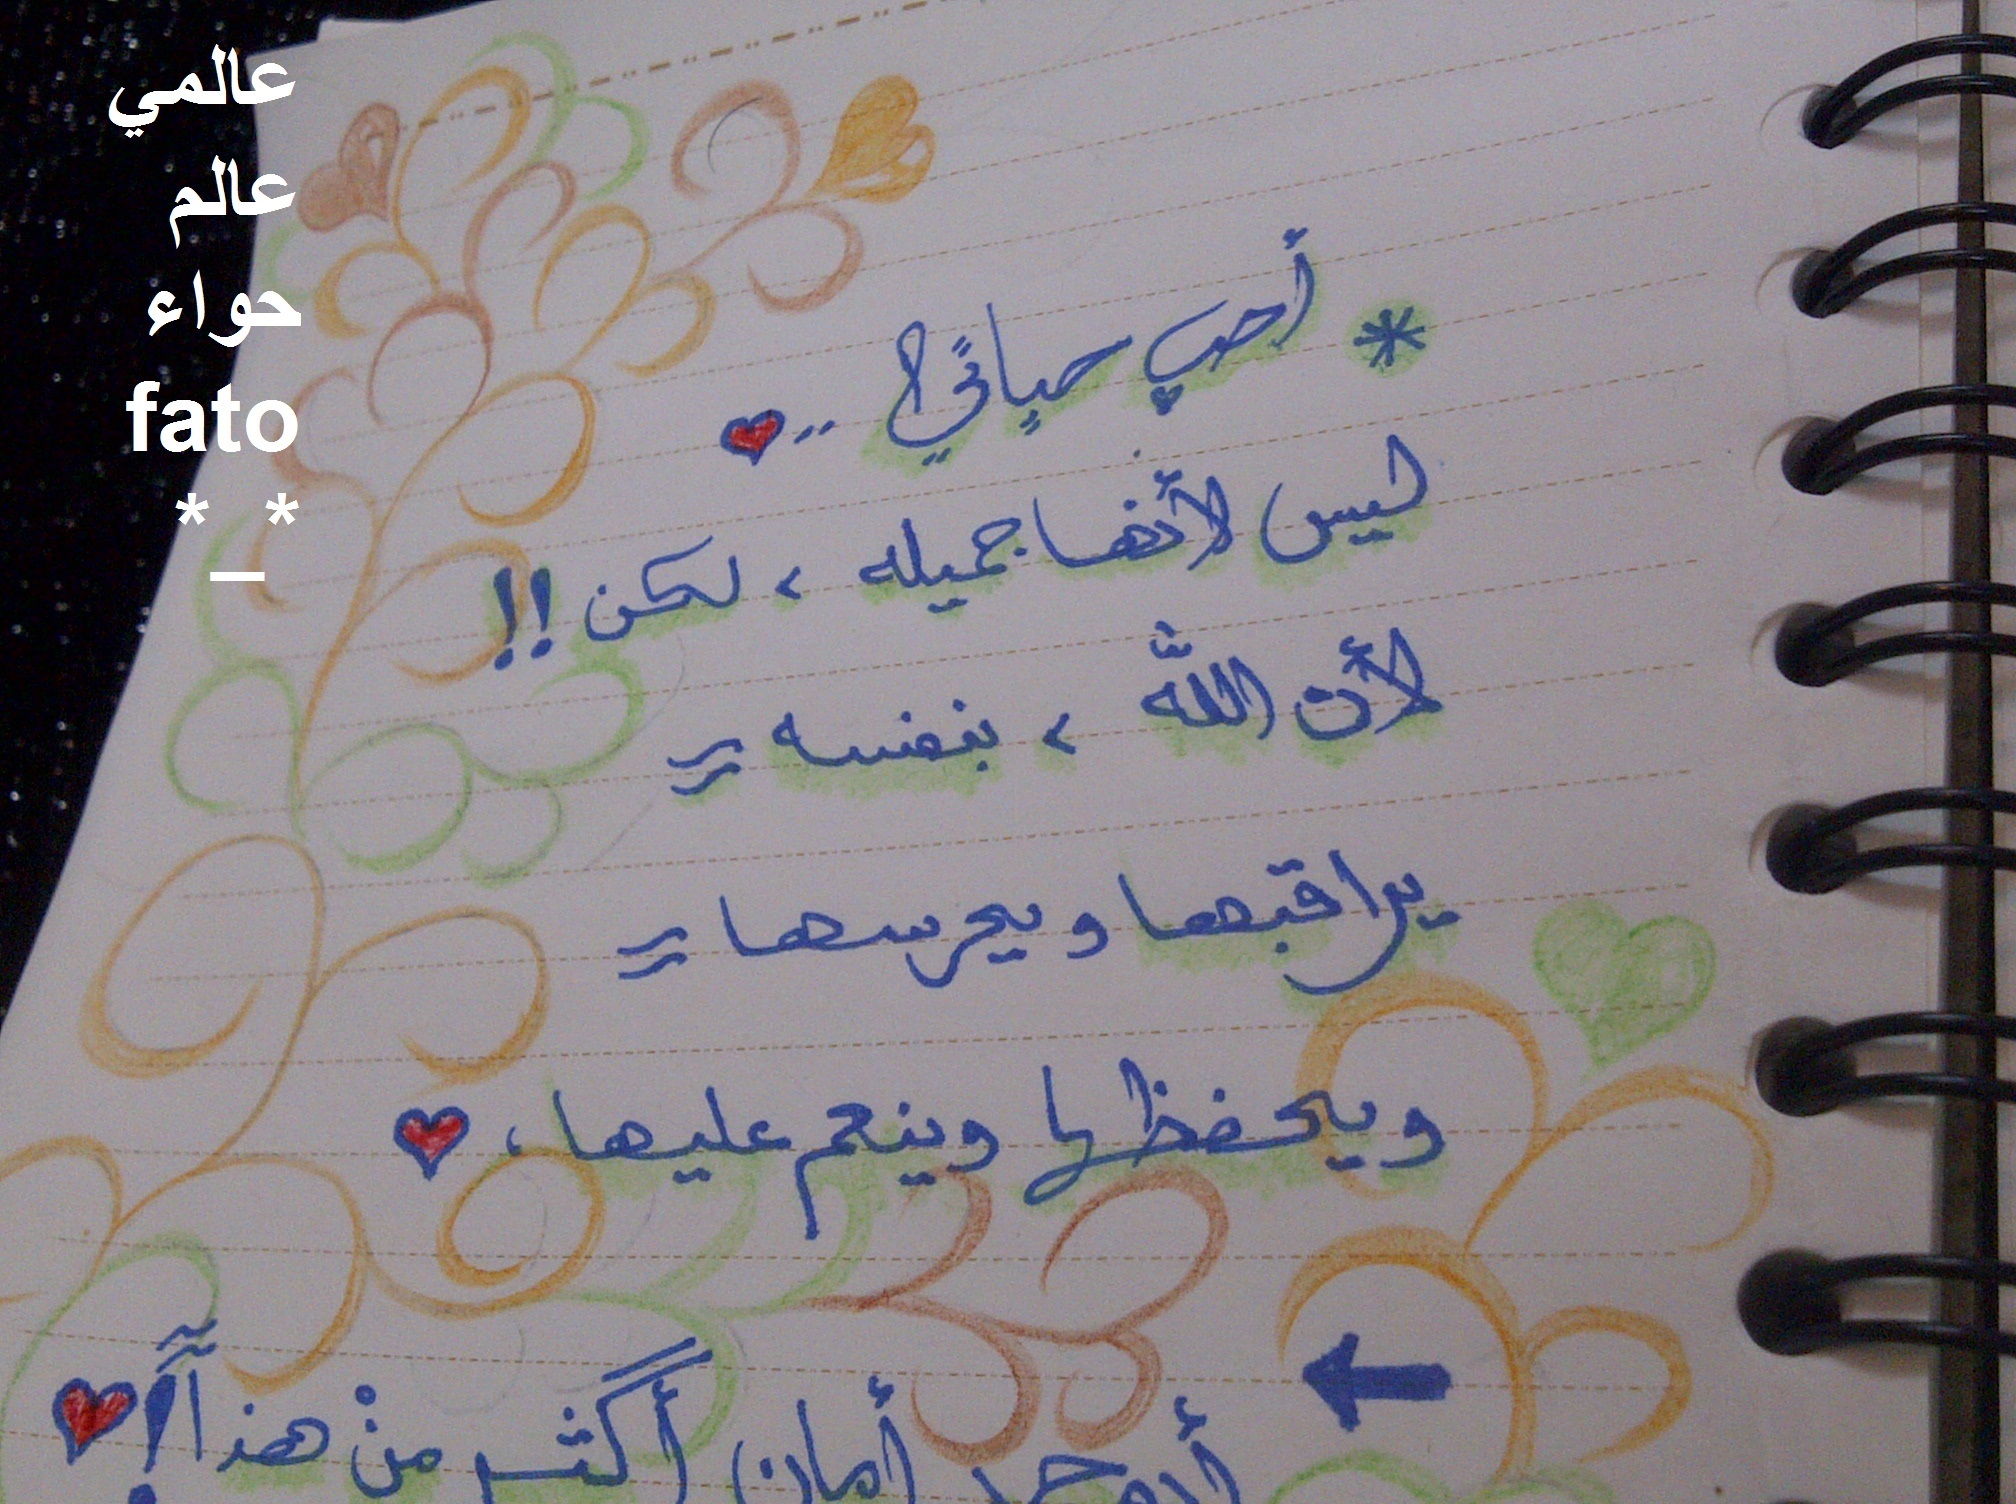 عالمي
عالم
حواء
fato
*_*
* أحب حياتي ..
ليس لأنها جميله ، لكن !!
لأن الله ، بنفسه
يراقبها ويحرسها
ويحفظها وينعم عليها ،
أيوجد أمان أكثر من هذا !